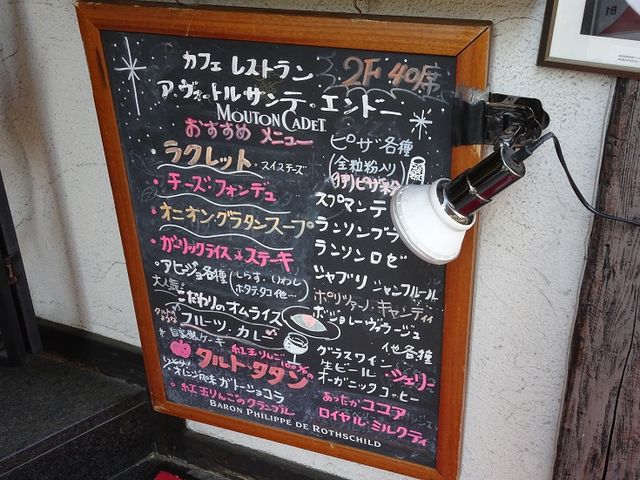 カフェ レストラン
2F 40席
ア・ヴォートルサンテ・エンドー
MOUTON CADET
おすすめ メニュー
・ラクレット・スイスチーズ
・チーズフォンデュ
・オニオングラタンスープ
・ガーリックライス&ステーキ
・アヒージョ各種(しらす、いわし
ホタテ、タコ他…)
大人気!
こだわりのオムライス
フルーツ・カレー
自家製ケーキ
紅玉りんご100%の
タルト・タタン
オレンジ風味 ガトーショコラ
・紅玉りんごのクランブル
ピザ各種
(全粒粉入り)
(伊)ピザ粉
スプマンテ
ランソンブラ
ランソンロゼ
シャブリ シャンブルール
ボジョレーヴィラージュ
他各種
グラスワイン
生ビール・シェリー
オーガニックコーヒー
あったかココア
ロイヤルミルクティ
BARON PHILIPPE DE ROTHSCHILD